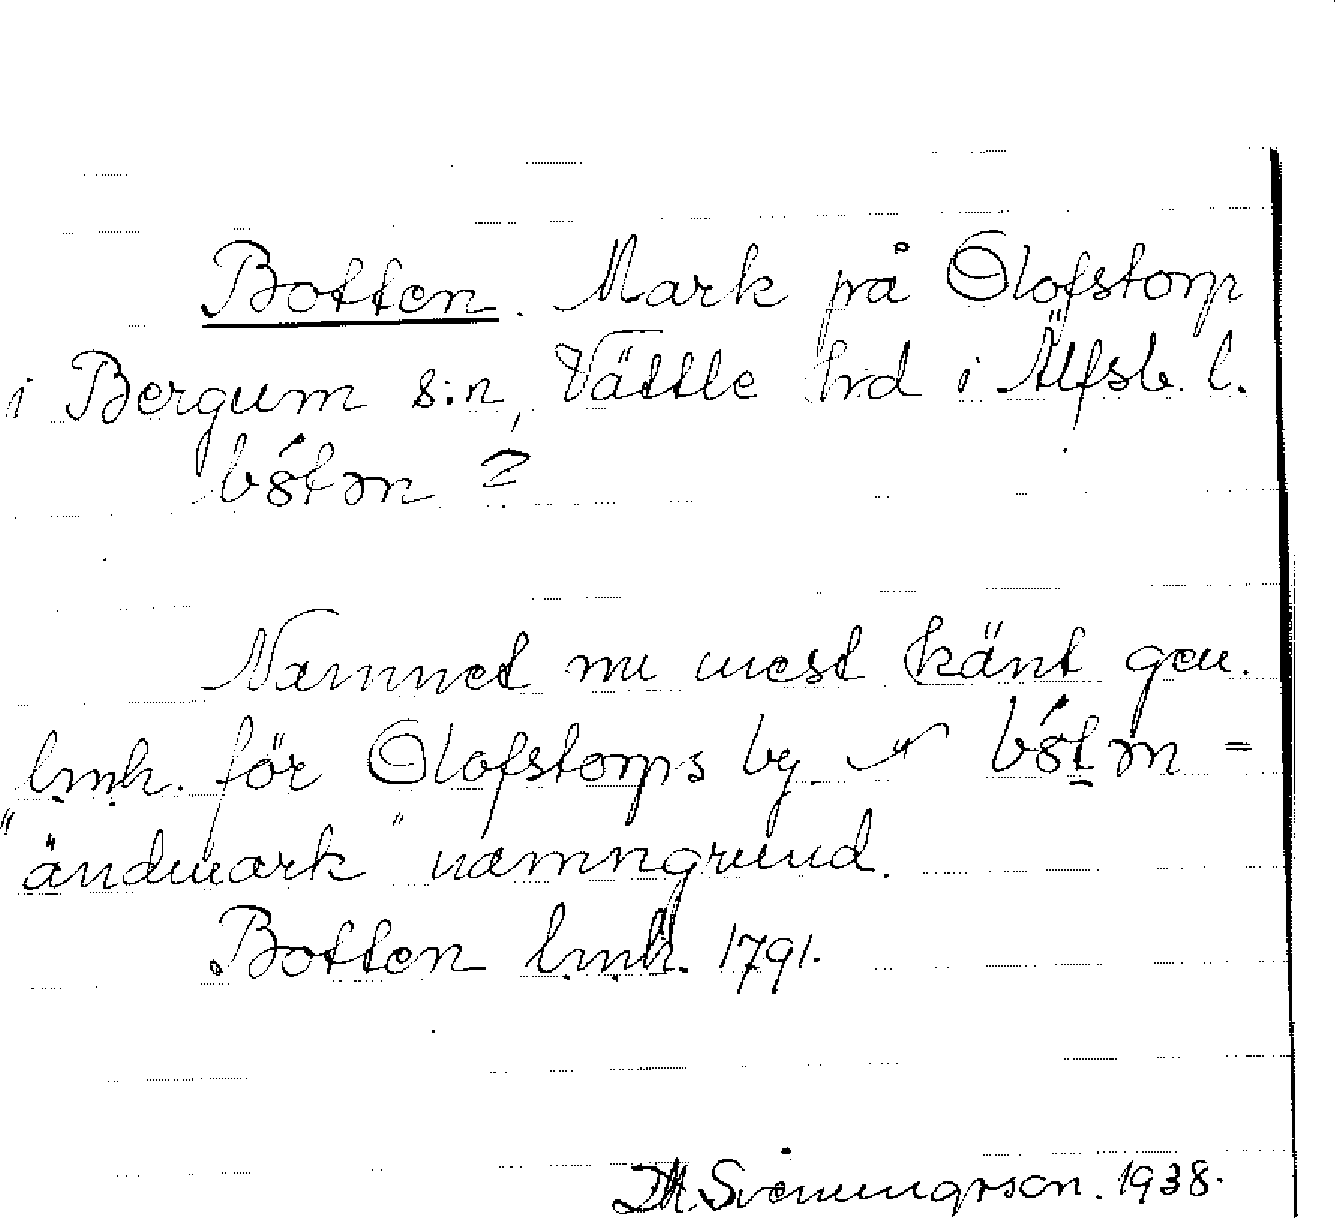 Botten. Mark på Olofstorp
i Bergum s:n, Vättle hrd i Älfsb. l.
bo᷄tən ?
Namnet nu mest känt gen.
lmh. för Olofstorps by. bótən =
"ändmark" namngrund.
Botten lmh. 1791.
D.A. Svenungsson. 1938.